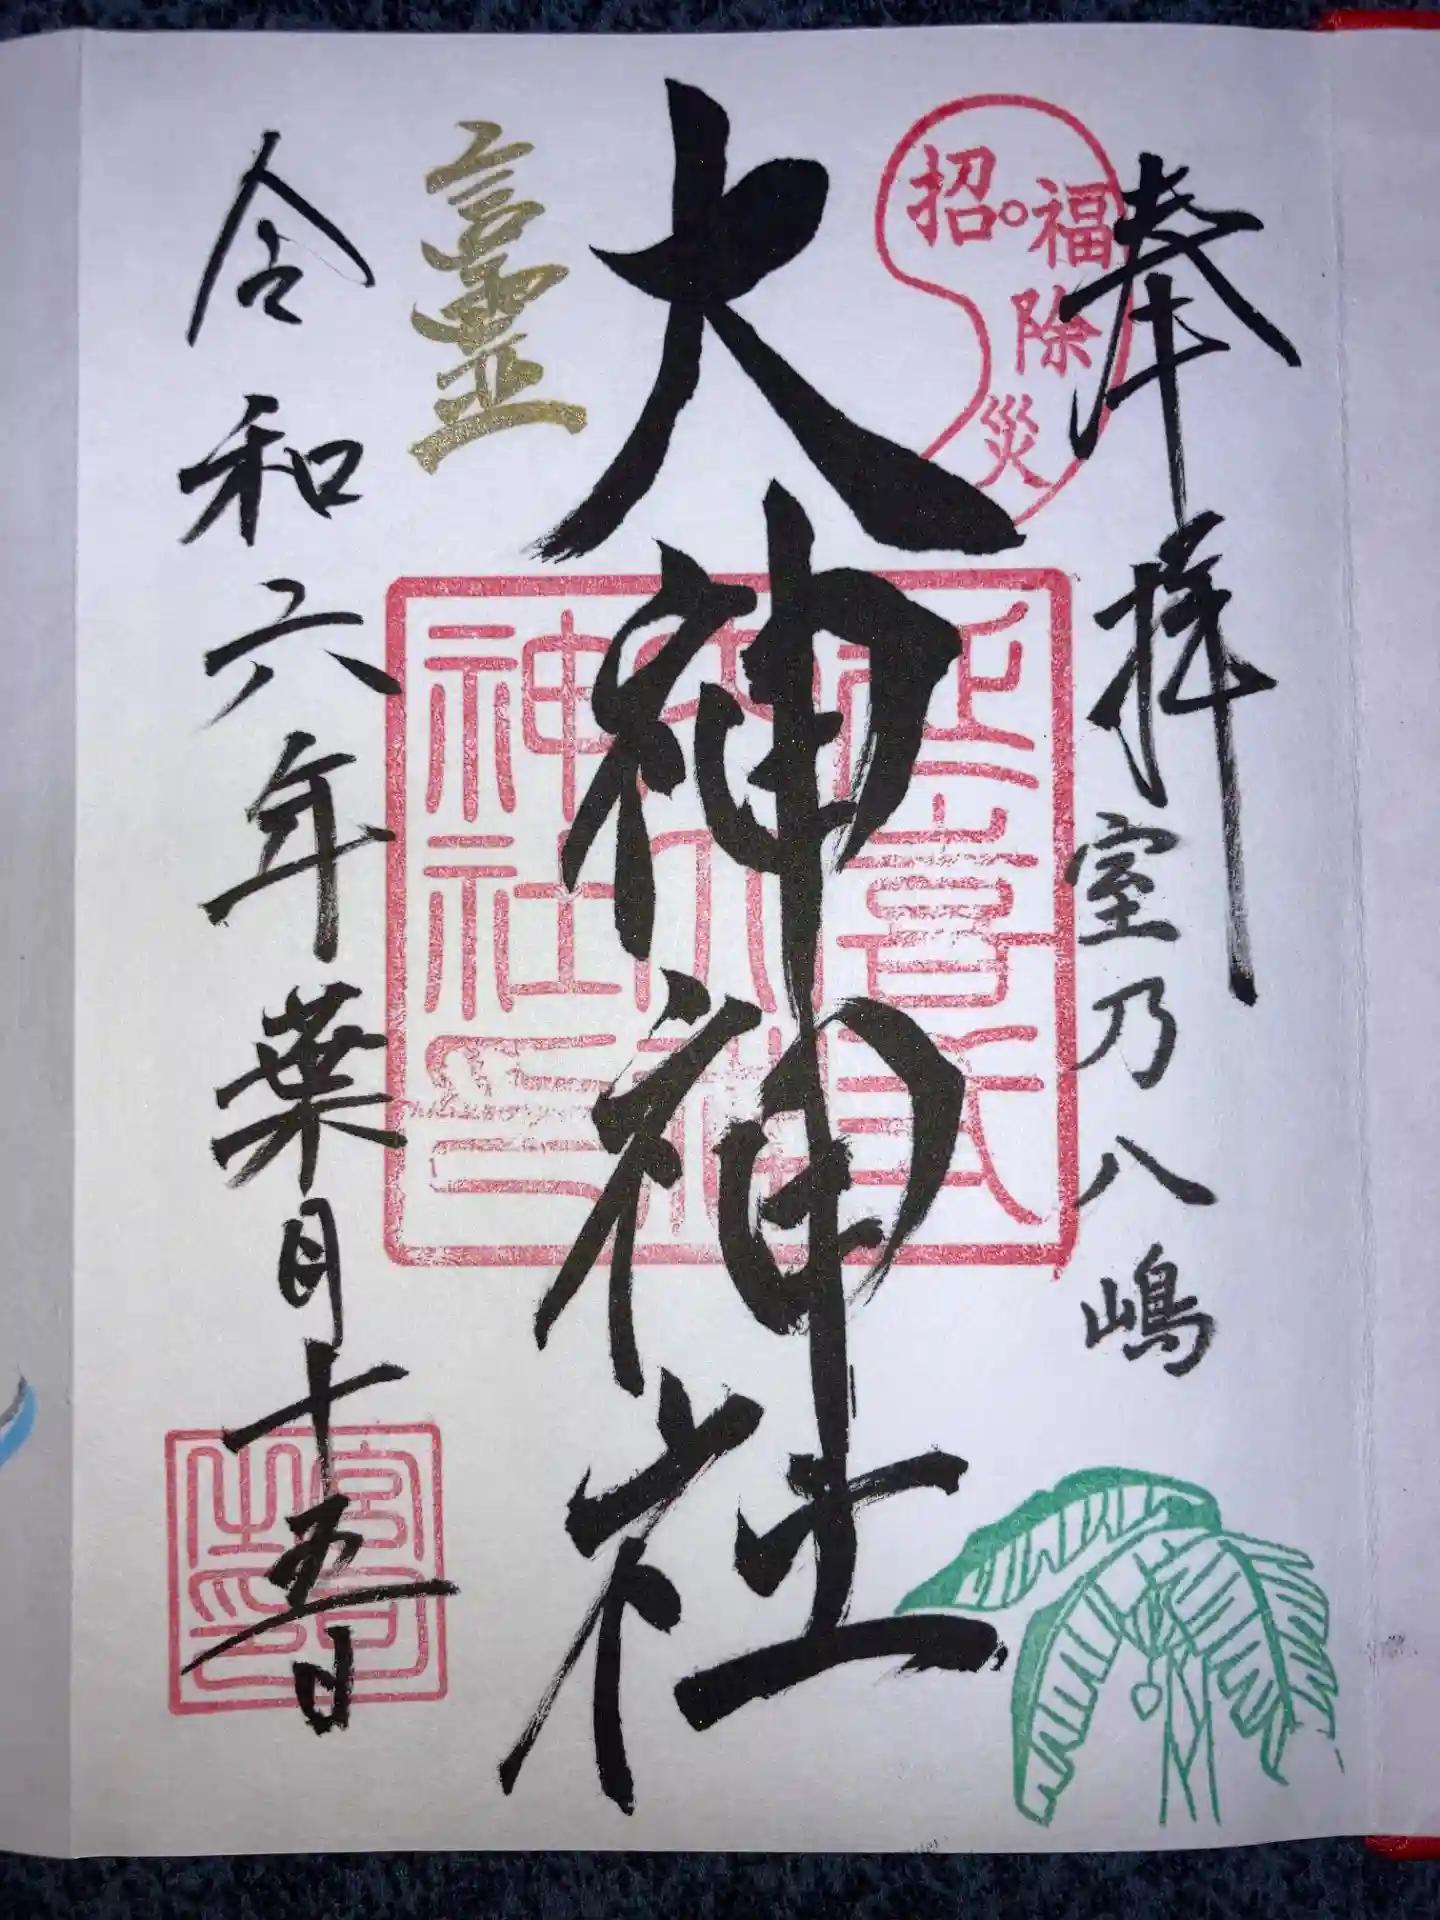 奉拝
室乃八嶋
招福除災
大神神社
延喜式
内大神
神社印
令和六年葉月十五日
宮司
之印